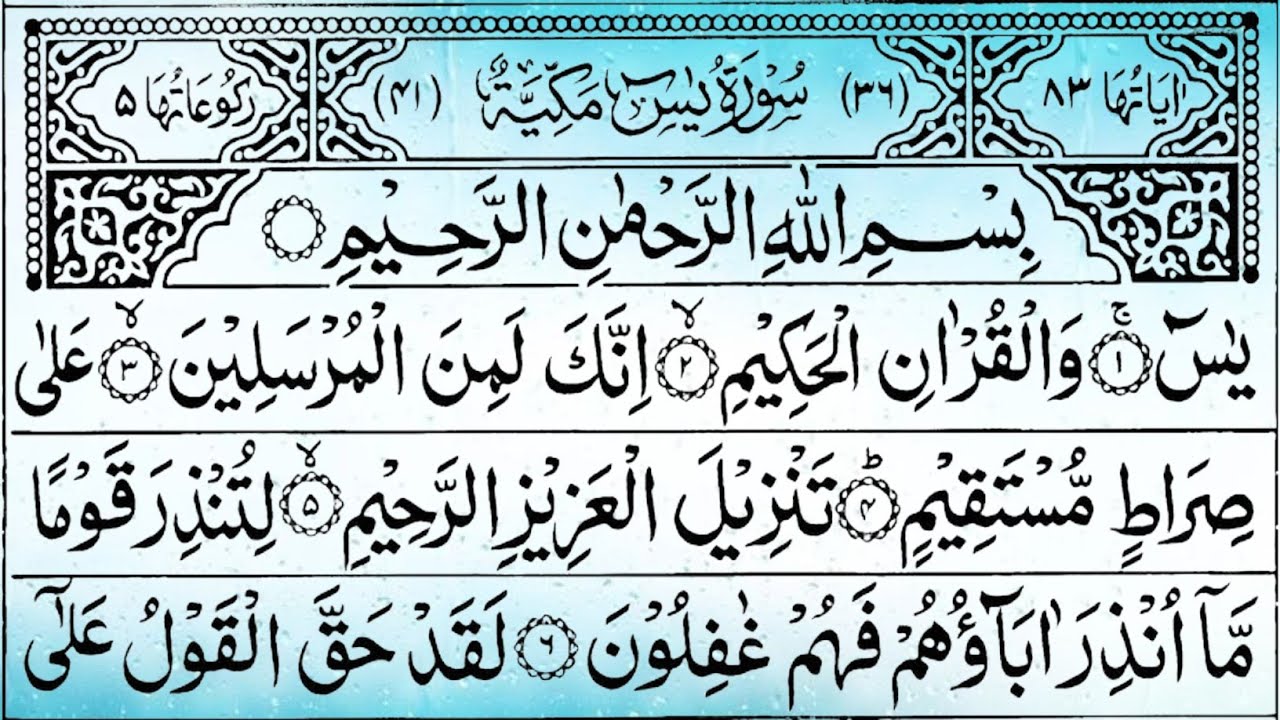 اٰيَاتُهَا ٨٣ (٣٦) سُوْرَةُ يٰسٓ مَكِّيَّةٌ (٤١) رُكُوْعَاتُهَا ۵
بِسْمِ اللّٰهِ الرَّحْمٰنِ الرَّحِيْمِ
يٰسٓ ۚ﴿۱﴾ وَالْقُرْاٰنِ الْحَكِيْمِ ۙ﴿۲﴾ اِنَّكَ لَمِنَ الْمُرْسَلِيْنَ ۙ﴿۳﴾ عَلٰى
صِرَاطٍ مُّسْتَقِيْمٍ ؕ﴿۴﴾ تَنْزِيْلَ الْعَزِيْزِ الرَّحِيْمِ ۙ﴿۵﴾ لِتُنْذِرَ قَوْمًا
مَّاۤ اُنْذِرَ اٰبَآؤُهُمْ فَهُمْ غٰفِلُوْنَ ﴿۶﴾ لَقَدْ حَقَّ الْقَوْلُ عَلٰۤى